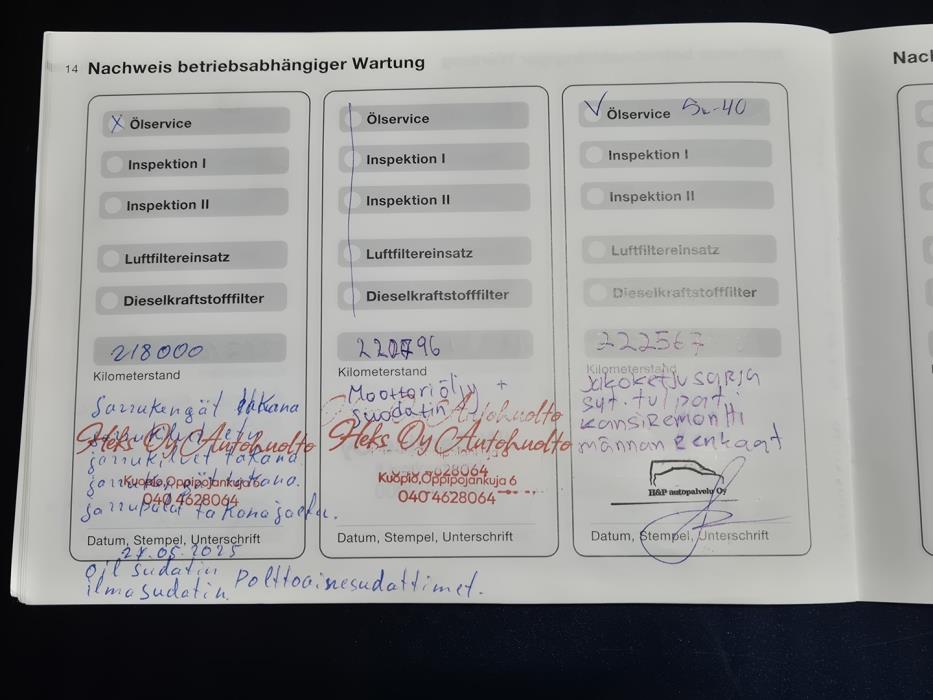 14 Nachweis betriebsabhängiger Wartung
Nach
X Ölservice
Inspektion I
Inspektion II
Luftfiltereinsatz
Dieselkraftstofffilter
218000
Kilometerstand
Jarrukengät takana
jarrukilvet takana
takana.
jarrupalat takana ja etu.
Heks Oy Autohuolto
Kuopio, Oppipojankuja 6
040 4628064
Datum, Stempel, Unterschrift
27.05.2025
oil sudatin
ilmasudatin. Polttoainesudattimet.
Ölservice
Inspektion I
Inspektion II
Luftfiltereinsatz
Dieselkraftstofffilter
220796
Kilometerstand
Moottoriöljy +
Suodatin
Autohuolto
Heks Oy Autohuolto
4628064
Kuopio, Oppipojankuja 6
040 4628064
Datum, Stempel, Unterschrift
V Ölservice 5w-40
Inspektion I
Inspektion II
Luftfiltereinsatz
Dieselkraftstofffilter
222567
Kilometerstand
Jakoketjusarja
syt. tulpat.
kansiremontti
männan renkaat
H&P autopalvelu Oy
Datum, Stempel, Unterschrift